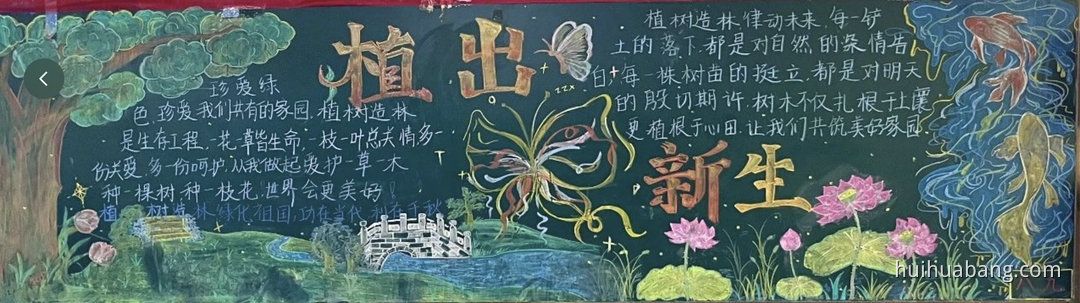 植出
新生
珍爱绿
色,珍爱我们共有的家园,植树造林
是生存工程,一花草皆生命,一枝一叶总关情,多一
份关爱,多一份呵护,从我做起爱护一草一木
种一棵树,种一枝花,世界会更美好!
植树造林,绿化祖国,功在当代,利在千秋
植树造林,律动未来,每一铲
土的落下,都是对自然的深情告
白,每一株树苗的挺立,都是对明天
的殷切期许,树木不仅扎根于土壤
更植根于心田,让我们共筑美好家园
huihuabang.com